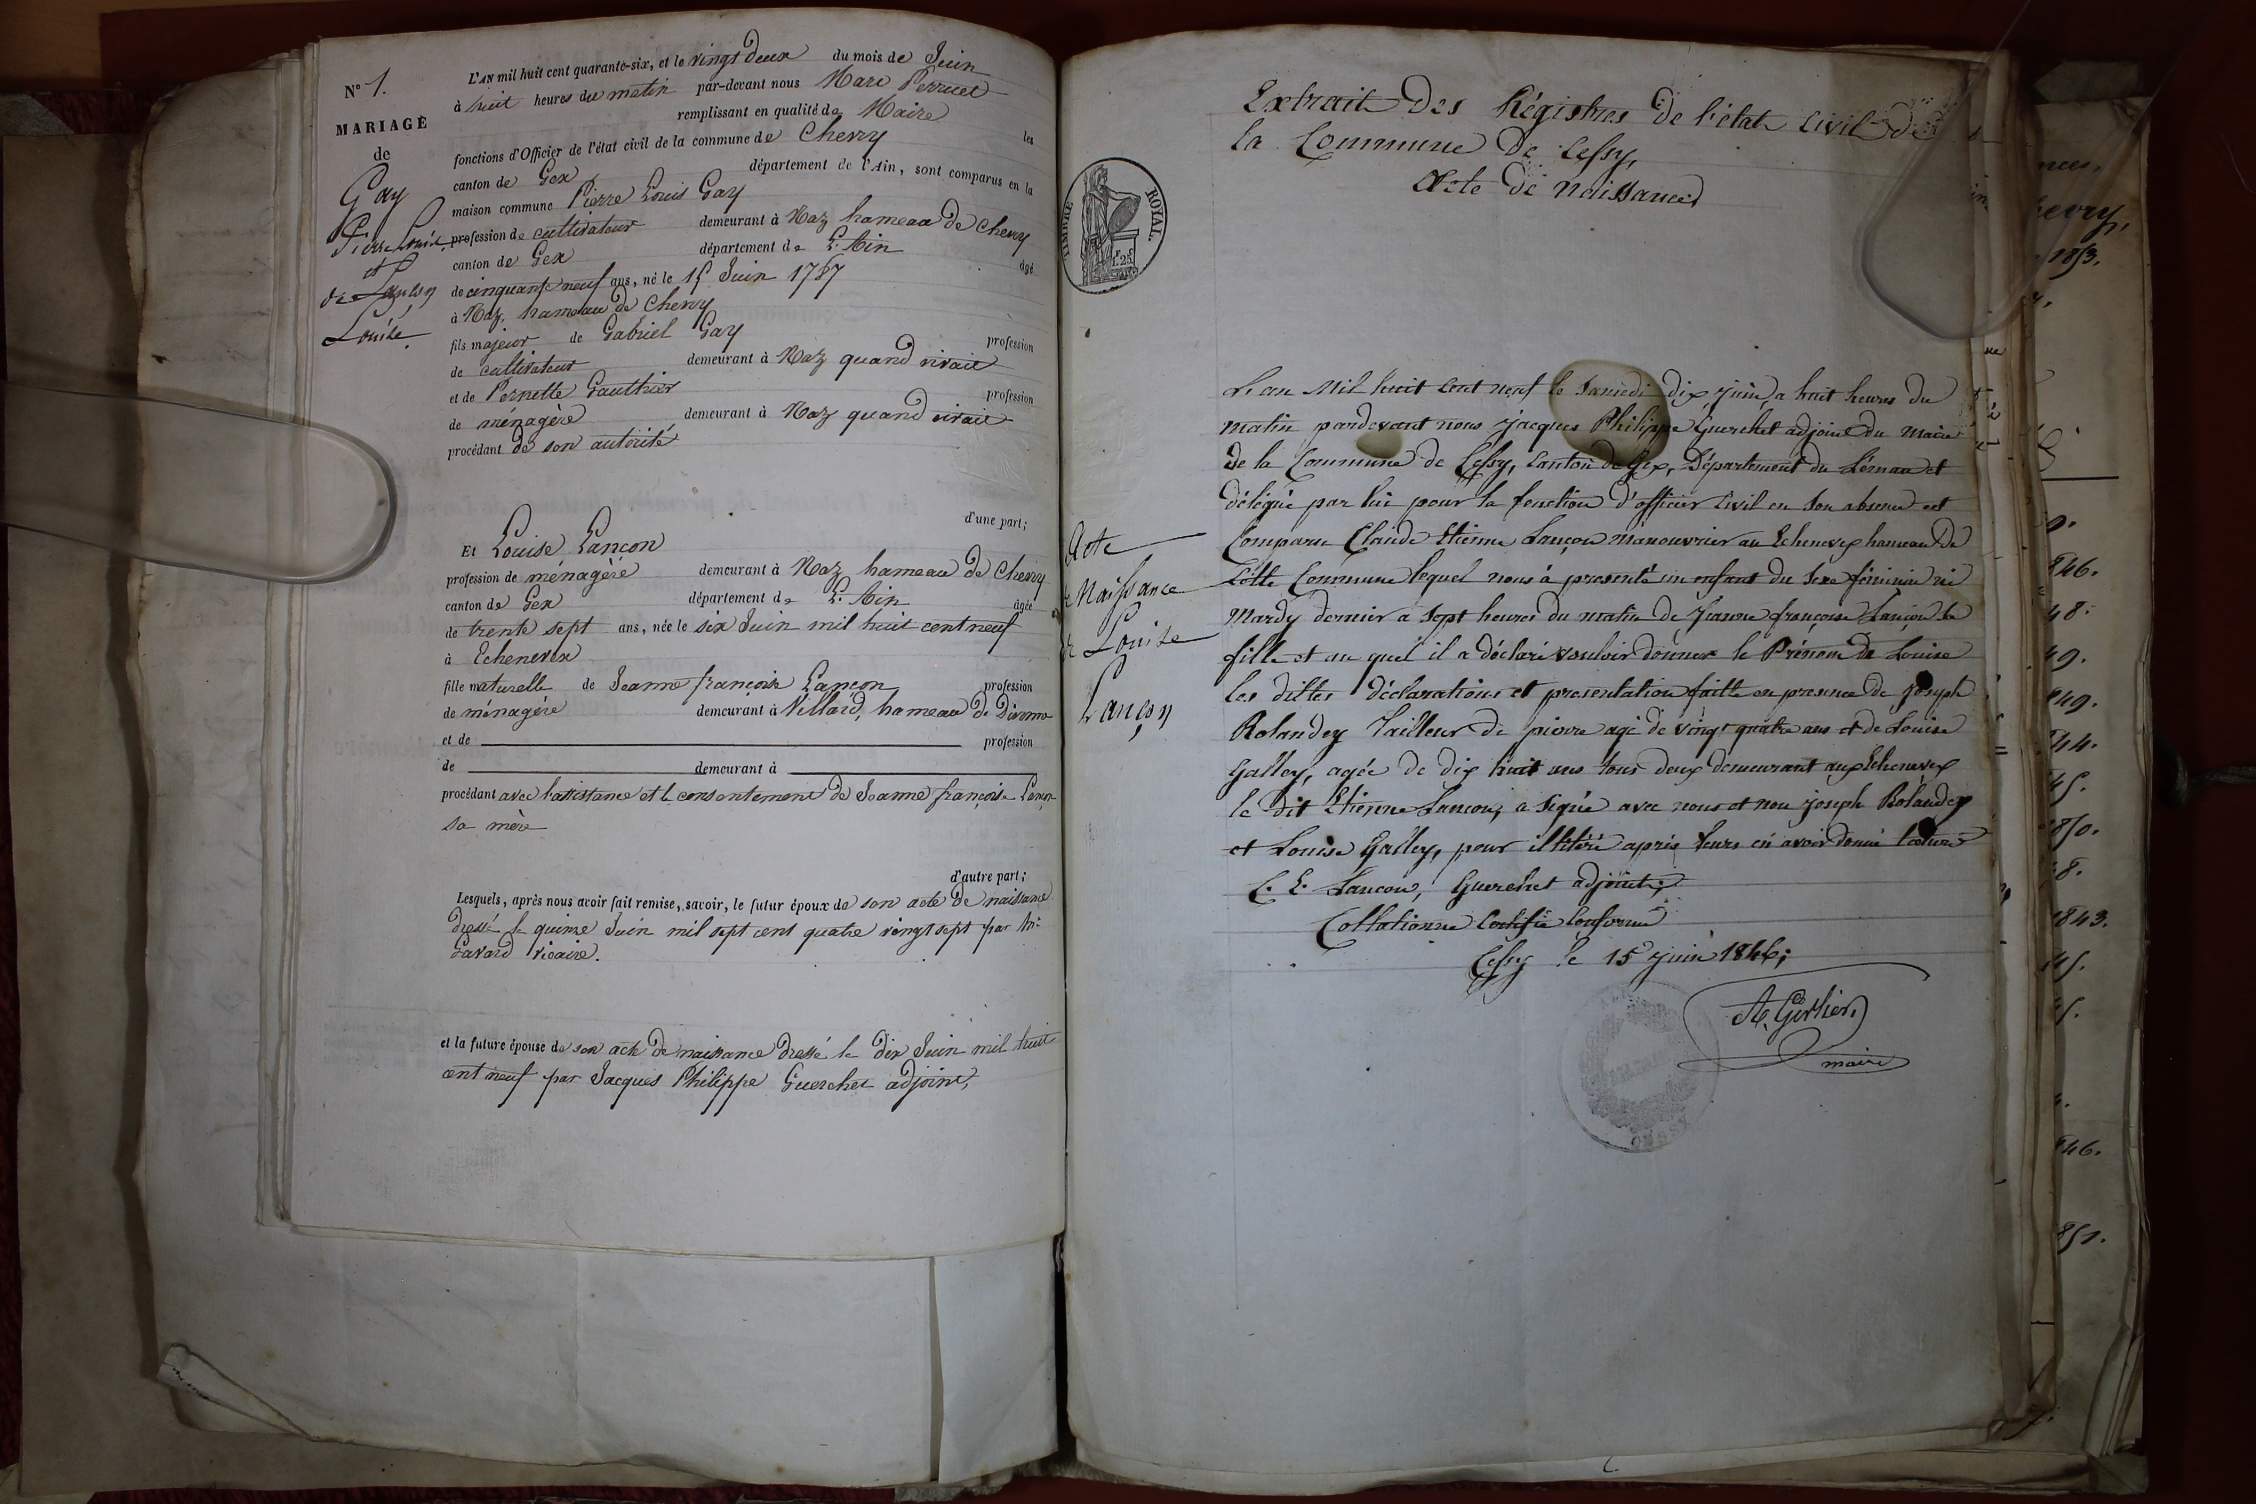 N° 1.
MARIAGE
de
Gay
Pierre Louis
et
de Lançon
Louise
L'AN mil huit cent quarante-six, et le vingt deux du mois de Juin
à huit heures du matin par-devant nous Marc Perruet
remplissant en qualité de Maire les
fonctions d'Officier de l'état civil de la commune de Chevry
canton de Gex département de l'Ain, sont comparus en la
maison commune Pierre Louis Gay
profession de cultivateur demeurant à Naz hameau de Chevry
canton de Gex département de L'Ain âgé
de cinquante neuf ans, né le 15 Juin 1787
à Naz, hameau de Chevry
fils majeur de Gabriel Gay profession
de cultivateur demeurant à Naz quand vivait
et de Pernette Gauthier profession
de ménagère demeurant à Naz quand vivait
procédant de son autorité
d'une part;
Et Louise Lançon
profession de ménagère demeurant à Naz hameau de Chevry
canton de Gex département de L'Ain âgée
de trente sept ans, née le six Juin mil huit cent neuf
à Echenevex
fille naturelle de Jeanne françoise Lançon profession
de ménagère demeurant à Villard, hameau de Divonne
et de profession
de demeurant à
procédant avec l'assistance et le consentement de Jeanne françoise Lançon
sa mère
d'autre part;
Lesquels, après nous avoir fait remise, savoir, le futur époux de son acte de naissance
dressé le quinze Juin mil sept cent quatre vingt sept par Mr
Gavard vicaire.
et la future épouse de son acte de naissance dressé le dix Juin mil huit
cent neuf par Jacques Philippe Guerchet adjoint,
Extrait des Régistres de l'état civil de
la Commune de Cessy,
Acte de Naissance
TIMBRE ROYAL.
1f. 25c
Acte
de Naissance
de Louise
Lançon
L'an mil huit cent neuf le Samedi dix juin, a huit heures du
matin pardevant nous jacques Philippe Guerchet adjoint du maire
de la Commune de Cessy, canton de Gex, Département du Léman et
délégué par lui pour la fonction d'officier civil en son absence est
Comparu Claude Etienne Lançon manouvrier au Echenevex hameau de
Cette Commune lequel nous à presenté un enfant du sexe féminin né
mardy dernier a sept heures du matin de Jeanne françoise Lançon sa
fille et au quel il a déclaré vouloir donner le Prénom de Louise
les dittes déclarations et presentation faitte en presence de joseph
Rolandey Tailleur de pierre agé de vingt quatre ans et de Louise
Galley, agée de dix huit ans tous deux demeurant aux Echenevex
le dit Etienne Lançon, a signé avec nous et non joseph Rolandey
et Louise Galley, pour illitéré après leurs en avoir donné lecture
C. E. Lancon, Guerchet adjoint;
Collationné Certifié conforme
Cessy le 15 juin 1846;
A. Girlier
maire
1853.
846.
48.
49.
849.
44.
45.
850.
8.
1843.
45.
846.
851.